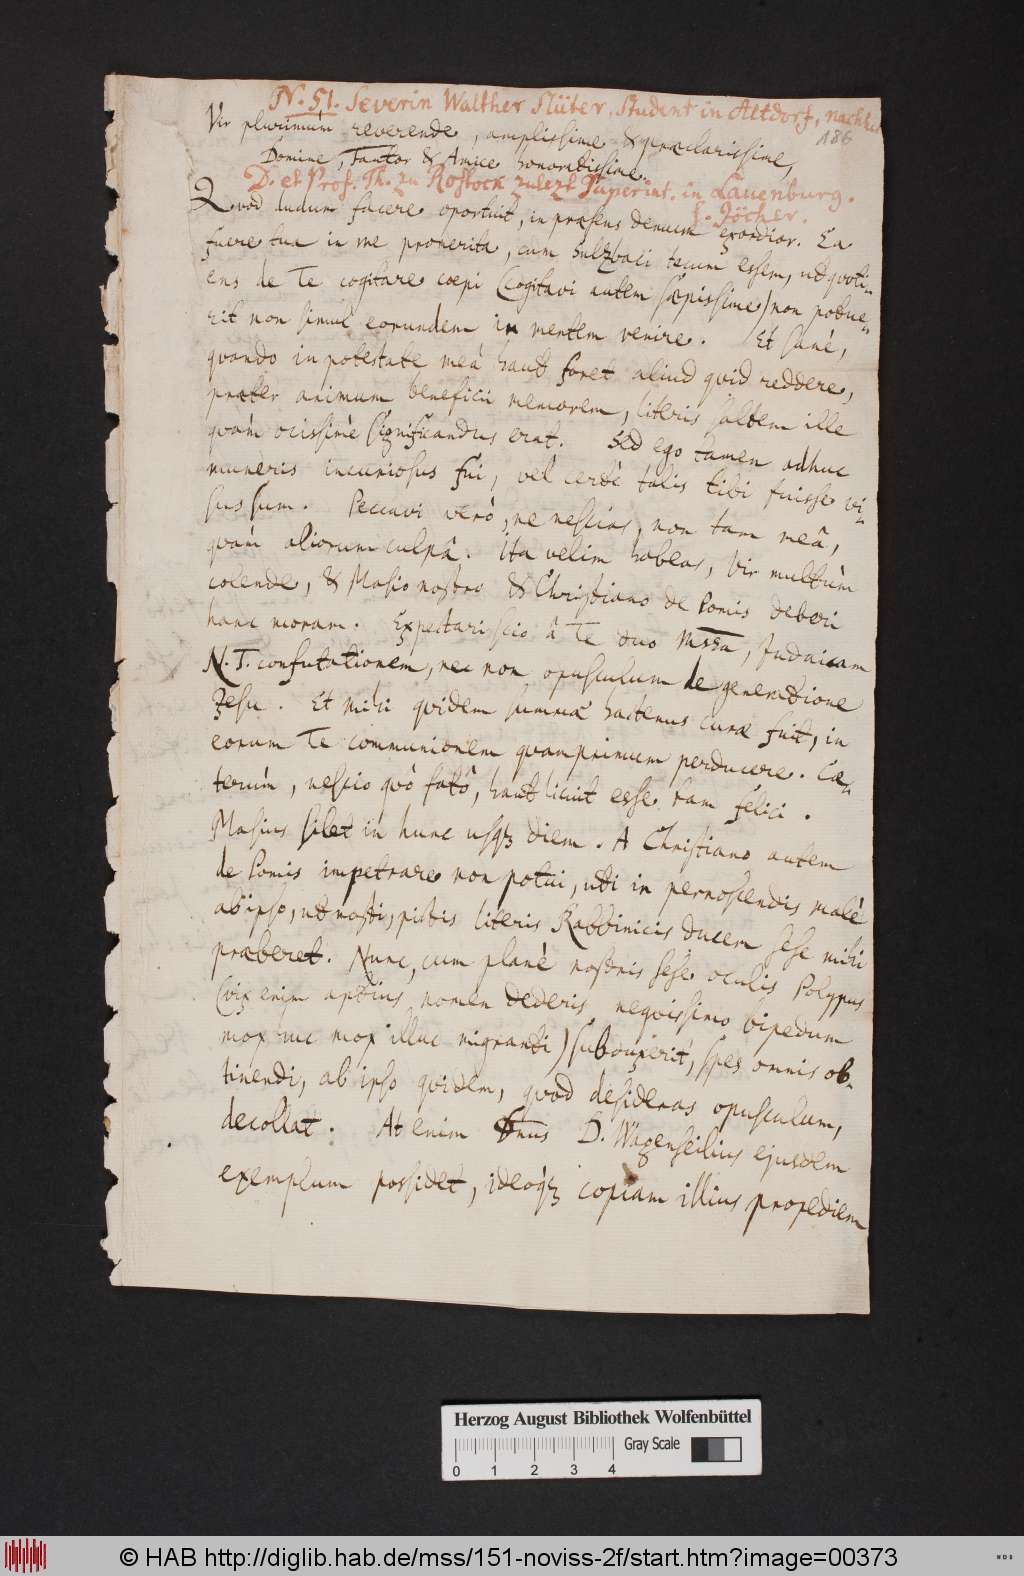 N. 51. Severin Walther Slüter, Student in Altdorf, nachher
186
Vir plurimùm reverende, amplissime & praeclarissime,
Domine, Fautor & Amice honoratissime.
D. et Prof. Th. zu Rostock zulezt Superint. in Lauenburg.
s. Jöcher.
Quod dudum facere oportuit, in praesens demum exordior. Ea
fuere tua in me promerita, cum Sulzbaci tecum essem, ut quoti-
ens de Te cogitare coepi (cogitavi autem saepissime) non potue-
rit non simul eorundem in mentem venire. Et sanè,
quando in potestate meâ haut foret aliud quid reddere,
praeter animum beneficii memorem, literis saltem ille
quàm ocissimè significandus erat. Sed ego tamen adhuc
muneris incuriosus fui, vel certè talis tibi fuisse vi-
sus sum. Peccavi verò, ne nescias, non tam meâ,
quàm aliorum culpâ. Ita velim habeas, Vir multùm
colende, & Masio nostro & Christiano de Pomis deberi
hanc moram. Expectari scio â Te duo Mssta, Judaicam
N. T. confutationem, nec non opusculum de generatione
Jesu. Et mihi quidem summae hactenus curae fuit, in
eorum Te communionem quamprimum perducere. Cae-
terùm, nescio quô fatô, haut licuit esse tam felici.
Masius silet in hunc usq; diem. A Christiano autem
de Pomis impetrare non potui, uti in pernoscendis malè
ab ipso, ut nosti, pictis literis Rabbinicis ducem sese mihi
praeberet. Nunc, cum planè nostris sese oculis Polypus
(vix enim aptius nomen dederis nequissimo bipedum
mox huc mox illuc migranti) subduxerit, spes omnis ob-
tinendi, ab ipso quidem, quod desideras opusculum,
decollat. At enim Dnus D. Wagenseilius ejusdem
exemplum possidet, ideóq; copiam illius propediem
Herzog August Bibliothek Wolfenbüttel
Gray Scale
0 1 2 3 4
© HAB http://diglib.hab.de/mss/151-noviss-2f/start.htm?image=00373